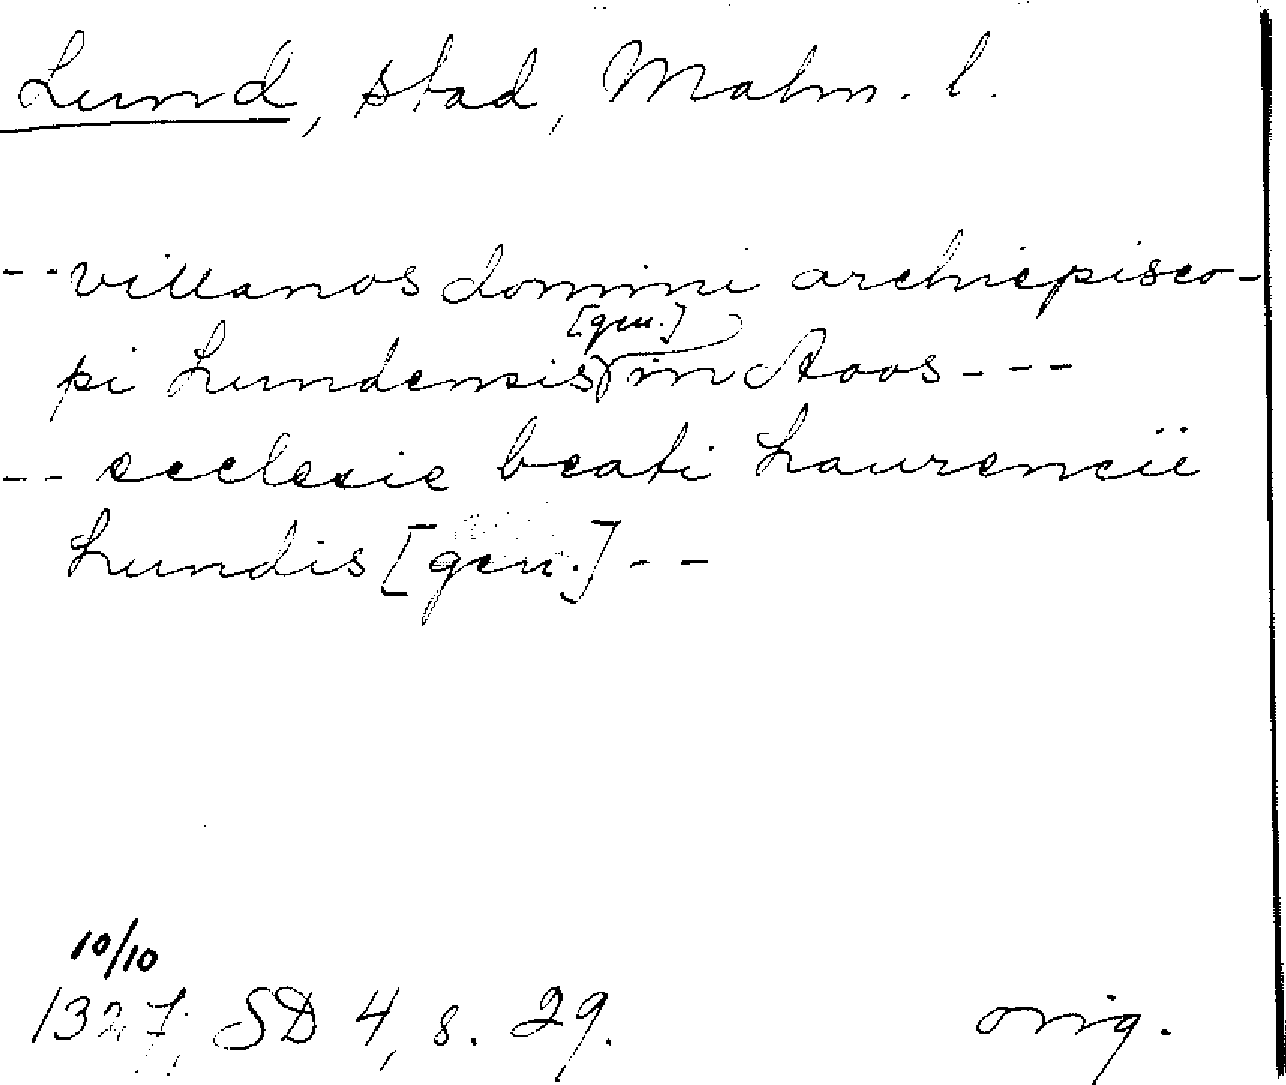 Lund, stad, Malm. l.
-- villanos domini archiepisco-
pi Lundensis [gen.] in Aoos ---
-- ecclesie beati Laurencii
Lundis [gen.] --
10/10
1327, SD 4, s. 29. orig.